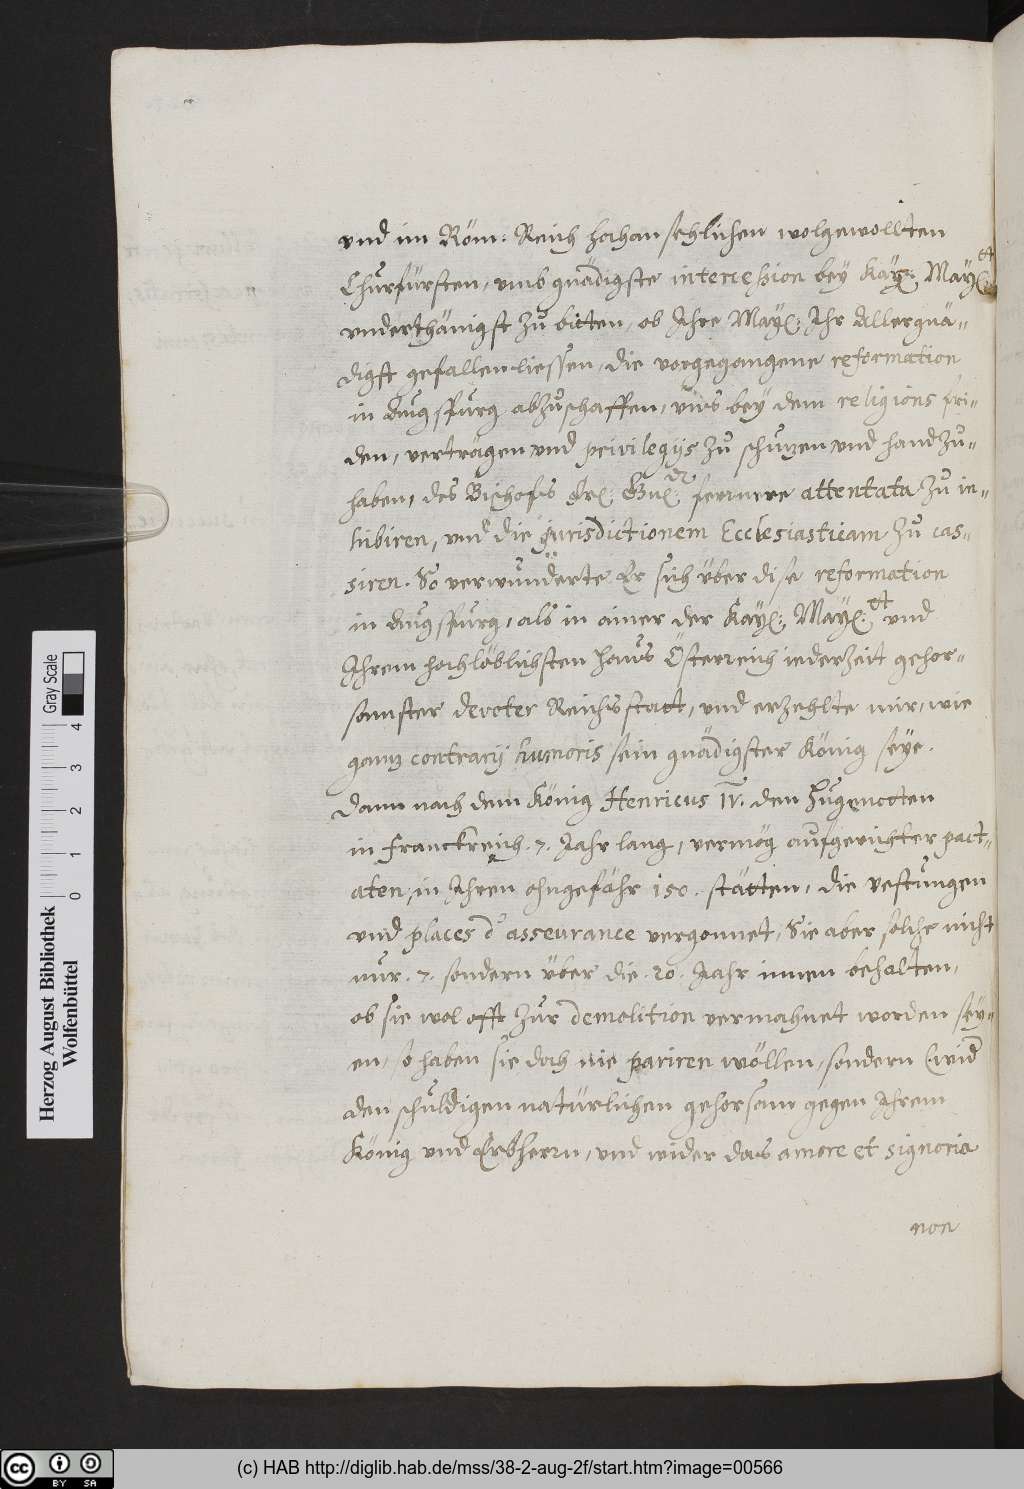 vnd im Röm: Reich hochansehlichen wolgewollten
Churfürsten, vmb gnädigste intercession bey Kay: May:tt
vnderthänigst zu bitten, ob Ihre May: Ihr Allergnä-
digst gefallen liessen, die vorgegangene reformation
in Augspurg abzuschaffen, vns bey dem religions fri-
den, verträgen vnd privilegijs zu schuzen vnd handzu-
haben, des Bischofs Fr: Gn:den fernere attentata zu in-
hibiren, vnd die jurisdictionem Ecclesiasticam zu cas-
siren. So verwunderte Er sich über dise reformation
in Augspurg, als in ainer der Kay: May:tt vnd
Ihrem hochlöblichsten Haus Österreich iederzeit gehor-
samster devoter Reichsstatt, vnd erzehlte mir, wie
ganz contrarij humoris sein gnädigster König seye.
Dann nach dem König Henricus IV. den Hugenotten
in Franckreich .7. Jahr lang, vermög aufgerichter pact-
aten, in Ihren ohngefähr 150. stätten, die vestungen
vnd places d'asseurance vergonnet, Sie aber solche nicht
nur .7. sondern über die .20. Jahr innen behalten,
ob sie wol offt zur demolition vermahnet worden sey-
en, so haben sie doch nie pariren wöllen, sondern (wid
den schuldigen natürlichen gehorsam gegen Ihrem
König vnd Erbherrn, vnd wider das amore et signoria
non
Herzog August Bibliothek
Wolfenbüttel
Gray Scale
0 1 2 3 4
cc BY SA
(c) HAB http://diglib.hab.de/mss/38-2-aug-2f/start.htm?image=00566